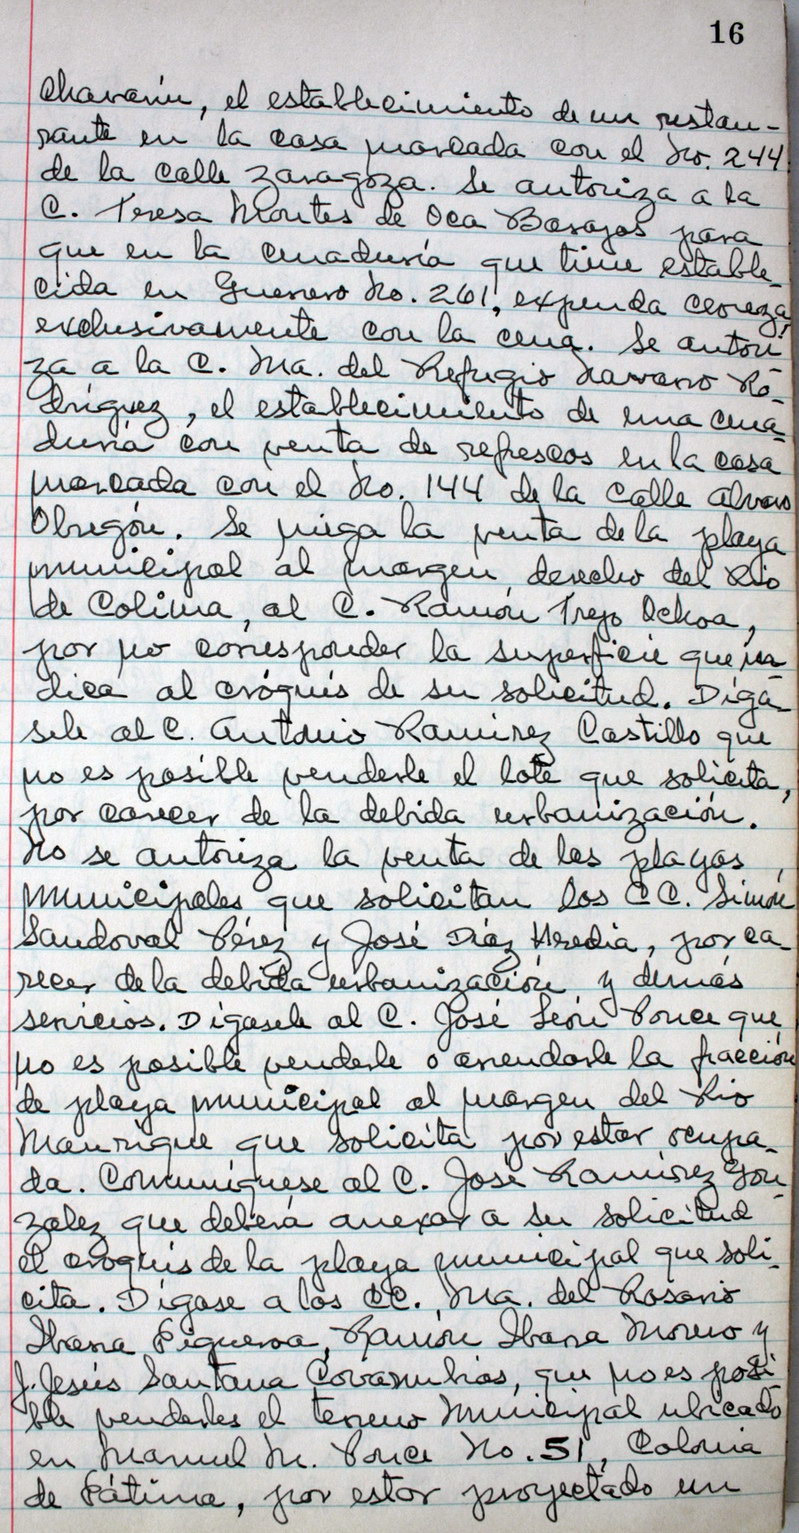 16
Chavarín, el establecimiento de un restau-
rante en la casa marcada con el No. 244
de la calle Zaragoza. Se autoriza a la
C. Teresa Montes de Oca Barajas para
que en la cenaduría que tiene estable-
cida en Guerrero No. 261, expenda cerveza
exclusivamente con la cena. Se autori-
za a la C. Ma. del Refugio Navarro Ro-
dríguez, el establecimiento de una cena-
duría con venta de refrescos en la casa
marcada con el No. 144 de la calle Alvaro
Obregón. Se niega la venta de la playa
municipal al margen derecho del Río
de Colima, al C. Ramón Trejo Ochoa,
por no corresponder la superficie que in-
dica al cróquis de su solicitud. Díga-
sele al C. Antonio Ramírez Castillo que
no es posible venderle el lote que solicita,
por carecer de la debida urbanización.
No se autoriza la venta de las playas
municipales que solicitan los CC. Simón
Sandoval Pérez y José Díaz Heredia, por ca-
recer de la debida urbanización y demás
servicios. Dígasele al C. José León Ponce que
no es posible venderle o arrendarle la fracción
de playa municipal al margen del Río
Manrique que solicita por estar ocupa-
da. Comuníquese al C. José Ramírez Gon-
zalez que deberá anexar a su solicitud
el cróquis de la playa municipal que soli-
cita. Dígase a los CC. Ma. del Rosario
Ibarra Figueroa, Ramón Ibarra Moreno y
J. Jesús Santana Covarrubias, que no es posi-
ble venderles el terreno Municipal ubicado
en Manuel M. Ponce No. 51, Colonia
de Fátima, por estar proyectado un